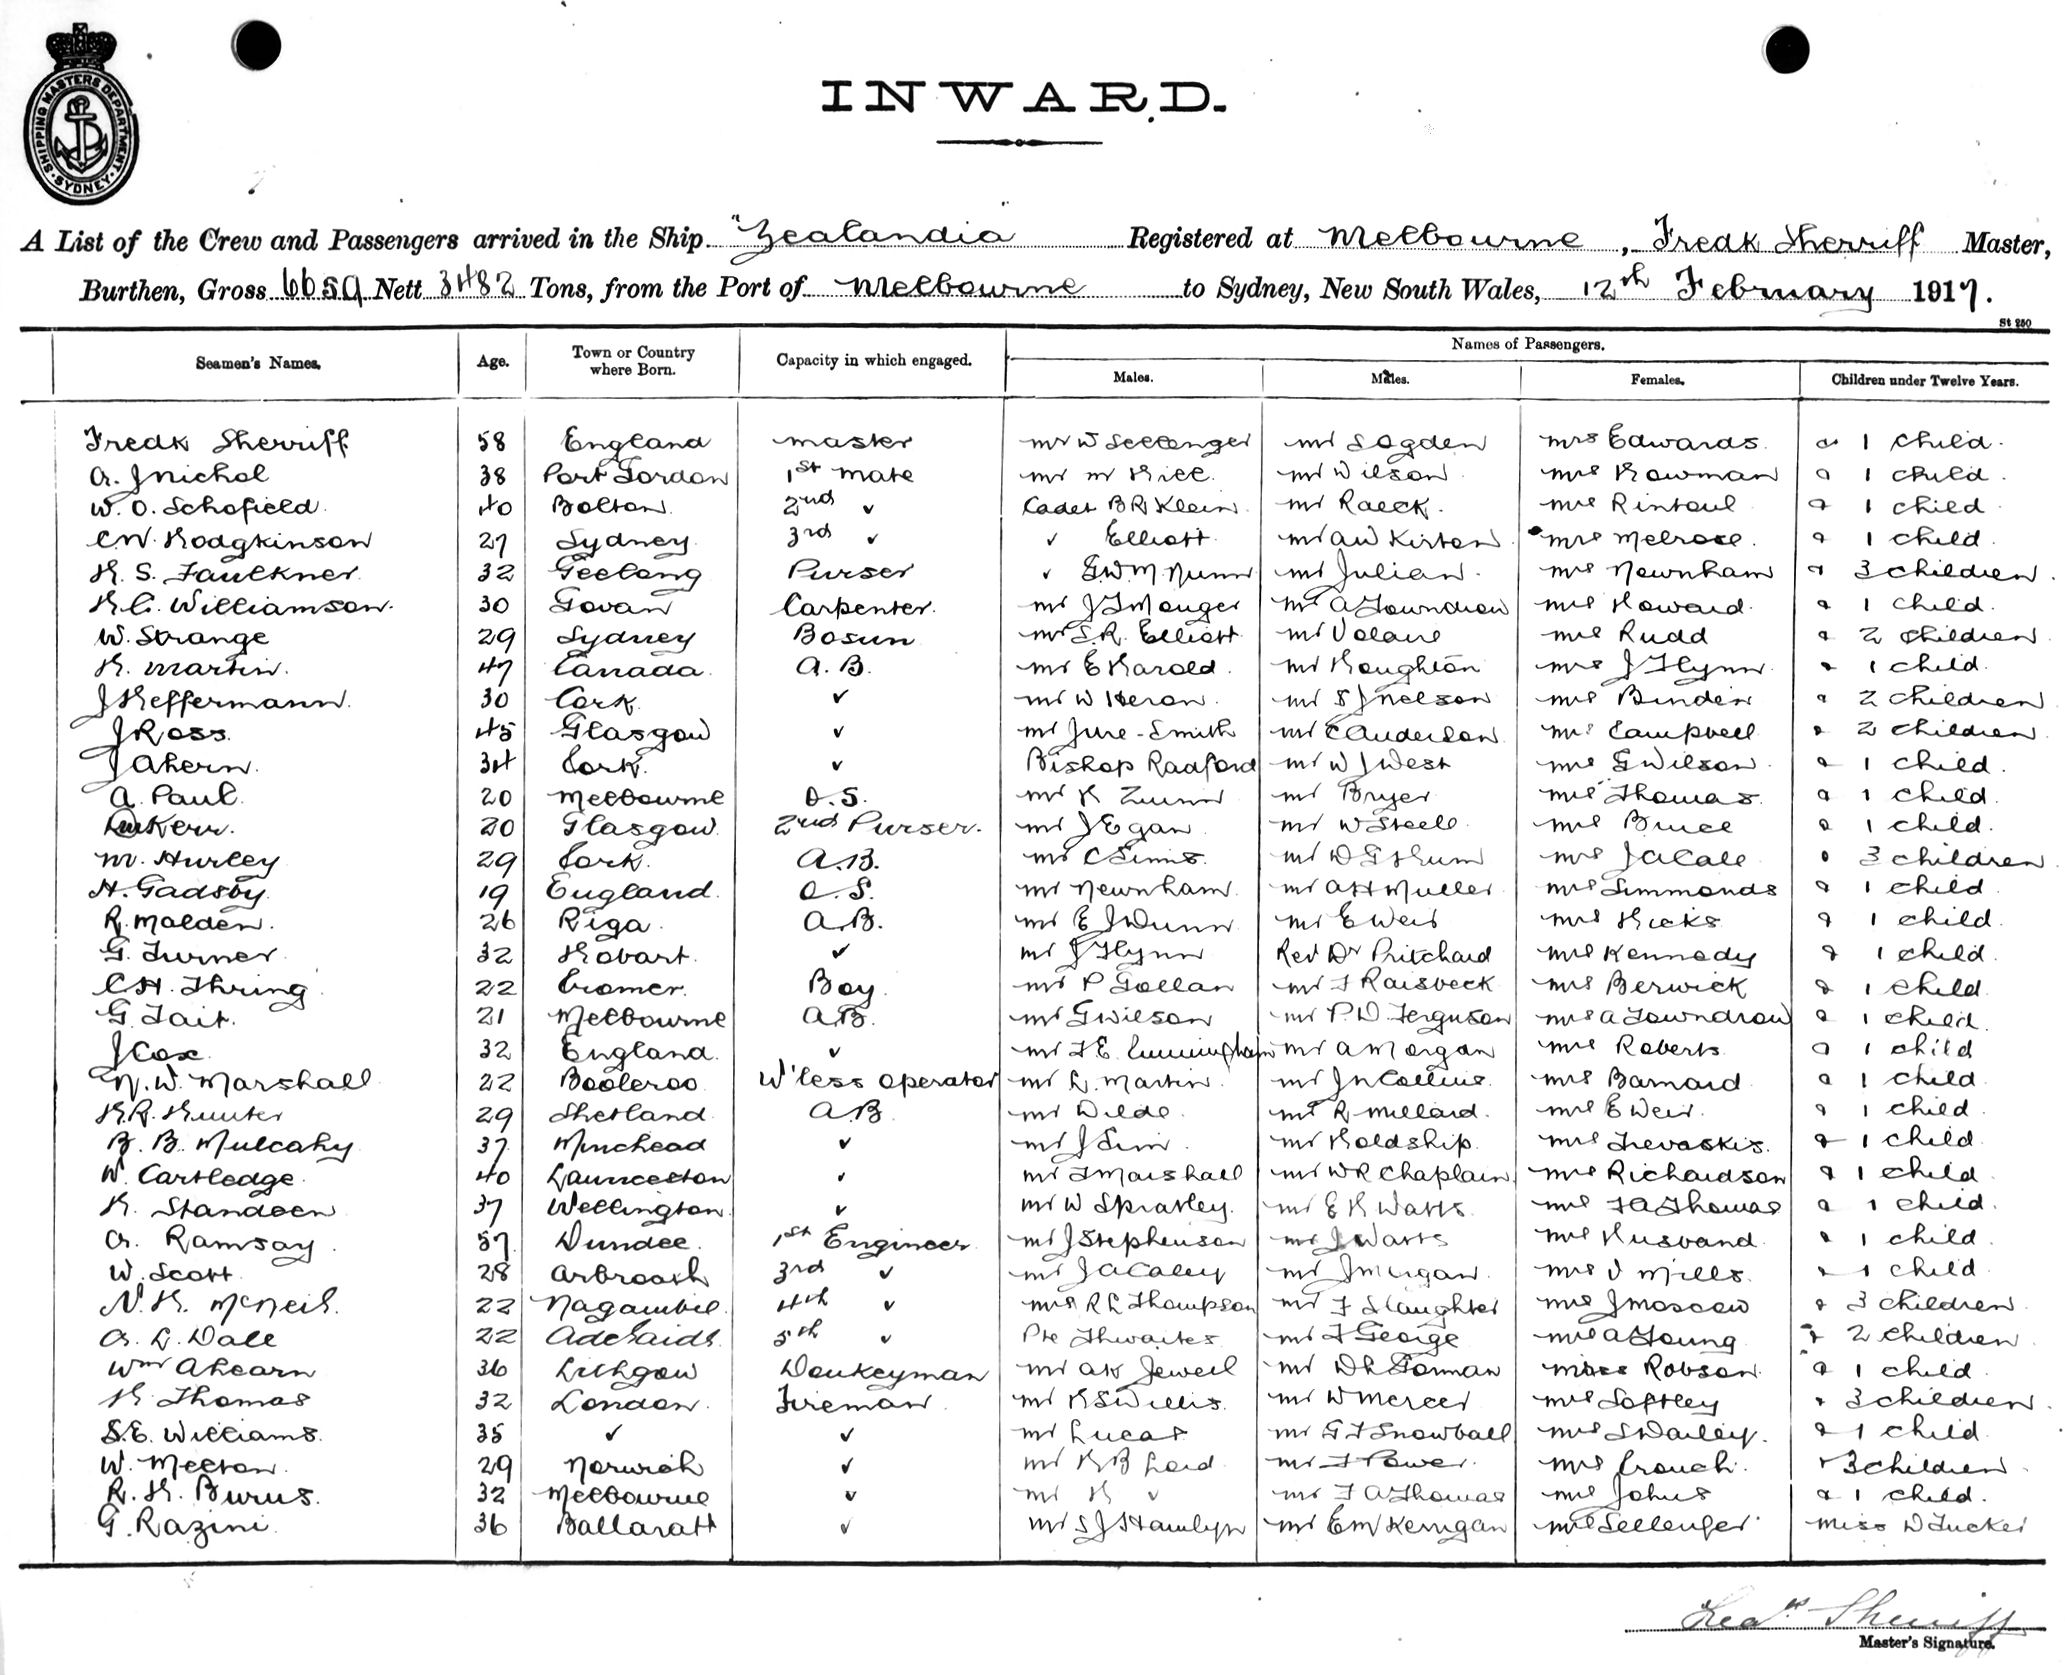 SHIPPING MASTERS DEPARTMENT. SYDNEY
INWARD.
A List of the Crew and Passengers arrived in the Ship "Zealandia" Registered at Melbourne, Fredk Sherriff Master,
Burthen, Gross 6659 Nett 3482 Tons, from the Port of Melbourne to Sydney, New South Wales, 12th February 1917.
St 250
Seamen's Names. Age. Town or Country where Born. Capacity in which engaged. Names of Passengers.
Males. Males. Females. Children under Twelve Years.
Fredk Sherriff 58 England Master Mr W Sellenger Mr Sogden Mrs Edwards & 1 child.
A. J Nichol 38 Port Gordon 1st Mate Mr M Hill. Mr Wilson Mrs Howman & 1 child.
W. O. Schofield. 40 Bolton. 2nd ✓ Cadet B R Klein. Mr Raeck. Mrs Rintoul & 1 child
C W. Hodgkinson 27 Sydney. 3rd ✓ ✓ Elliott. Mr A W Kirton. Mrs Melrose. & 1 child.
H. S. Faulkner. 32 Geelong Purser ✓ G W M Nunn Mr Julian. Mrs Newnham & 3 children.
H. C. Williamson. 30 Govan Carpenter. Mr J T Monger Mr A Towndrow Mrs Howard. & 1 child.
W. Strange 29 Sydney Bosun Mr S. R. Elliott Mr Mrs Rudd & 2 children
H. Martin. 47 Canada. A. B. Mr E Harold. Mr Houghton Mrs J Flynn. & 1 child.
J Heffermann. 30 Cork. ✓ Mr W Heron. Mr S J Nelson Mrs Binder & 2 children
J Ross. 45 Glasgow ✓ Mr Jure-Smith Mr C Anderson. Mrs Campbell & 2 children
J Ahern. 34 Cork. ✓ Bishop Radford Mr W J West Mrs G Wilson. & 1 child.
A. Paul. 20 Melbourne O. S. Mr H Mr Bryer Mrs Thomas. & 1 child.
Kerr. 20 Glasgow. 2nd Purser. Mr J Egan. Mr W Steele. Mrs Bruce & 1 child.
M. Hurley 29 Cork. A. B. Mr C Simms. Mr D G Hum Mrs J A Cale & 3 children
H. Gadsby. 19 England. O. S. Mr Newnham. Mr A H Muller Mrs Simmonds & 1 child.
R. Malden. 26 Riga. A. B. Mr E J Dunn Mr E Weir Mrs Hicks & 1 child.
G. Turner 32 Hobart. ✓ Mr J Flynn Rev Dr Pritchard Mrs Kennedy & 1 child.
C H. Thring 22 Cromer. Boy. Mr P Gollan Mr F Raisbeck Mrs Berwick & 1 child.
G. Tait. 21 Melbourne A. B. Mr G Wilson Mr P. D. Ferguson Mrs A Towndrow & 1 child.
J Cox. 32 England. ✓ Mr F E. Cunningham Mr A Morgan Mrs Roberts & 1 child
N. W. Marshall 22 Booleroo W'less operator Mr L. Martin. Mr J N Collins. Mrs Barnard & 1 child.
H. R. Hunter 29 Shetland. A. B. Mr Wilde. Mr R Millard. Mrs E Weir. & 1 child.
B. B. Mulcahy 37 Minehead ✓ Mr J Sim. Mr Holdship. Mrs Trevaskis. & 1 child.
W. Cartledge. 40 Launceston ✓ Mr F Marshall Mr W R Chaplain Mrs Richardson & 1 child.
H. Standoen 37 Wellington. ✓ Mr W Spratley. Mr E H Watts. Mrs F A Thomas & 1 child.
A. Ramsay. 57 Dundee. 1st Engineer. Mr J Stephenson Mr J Watts Mrs Husband. & 1 child.
W. Scott. 28 Arbroath 3rd ✓ Mr J A Caley Mr J Morgan. Mrs J Mills. & 1 child.
N. H. McNeil. 22 Nagambie. 4th ✓ Mrs R L Thompson Mr F Slaughter Mrs J Moscow & 3 children.
A. L. Dale 22 Adelaide. 5th ✓ Pte Thwaites. Mr F George Mrs A Young & 2 children.
Wm Ahearn 36 Lithgow Donkeyman Mr A K Jewell Mr D L Gorman Miss Robson. & 1 child.
H. Thomas 32 London. Fireman. Mr H S Willis. Mr W Mercer Mrs Softley & 3 children.
S. E. Williams. 35 ✓ ✓ Mr Lucas Mr G F Snowball Mrs S Dailey. & 1 child.
W. Melton. 29 Norwich ✓ Mr H B Lord. Mr F Power. Mrs Crouch. & 3 children.
R. H. Burns. 32 Melbourne ✓ Mr H ✓ Mr F A Thomas Mrs Johns & 1 child.
G. Razini. 36 Ballaratt ✓ Mr S J Hamlyn Mr E M Kerrigan Mrs Sellenger Miss D Tucker
Fredk Sherriff
Master's Signature.